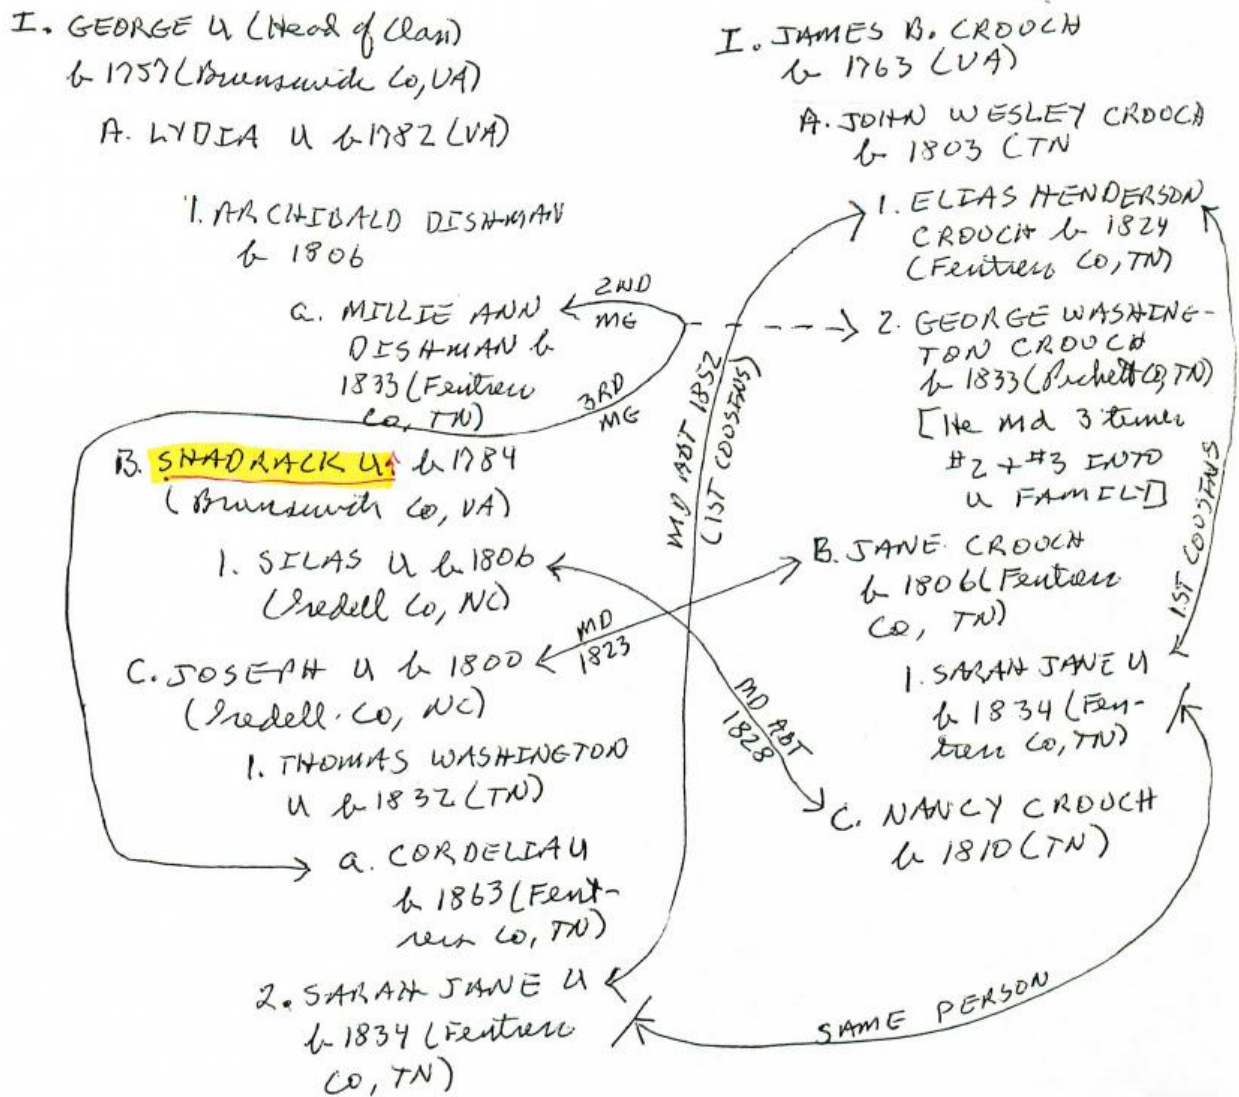 I. GEORGE U (Head of Clan)
b 1757 (Brunswick Co, VA)
A. LYDIA U b 1782 (VA)
1. ARCHIBALD DISHMAN
b 1806
a. MILLIE ANN
DISHMAN b
1833 (Fentress
Co, TN)
2ND
MG
3RD
MG
B. SHADRACK U. b 1784
(Brunswick Co, VA)
1. SILAS U b 1806
(Iredell Co, NC)
C. JOSEPH U b 1800
(Iredell Co, NC)
MD
1823
1. THOMAS WASHINGTON
U b 1832 (TN)
a. CORDELIA U
b 1863 (Fent-
ress Co, TN)
2. SARAH JANE U
b 1834 (Fentress
Co, TN)
MD ABT 1852
(1ST COUSINS)
MD ABT
1828
I. JAMES B. CROUCH
b 1763 (VA)
A. JOHN WESLEY CROUCH
b 1803 (TN
1. ELIAS HENDERSON
CROUCH b 1824
(Fentress Co, TN)
2. GEORGE WASHING-
TON CROUCH
b 1833 (Pickett Co, TN)
[He md 3 times
#2 + #3 INTO
U FAMILY]
B. JANE CROUCH
b 1806 (Fentress
Co, TN)
1. SARAH JANE U
b 1834 (Fen-
tress Co, TN)
C. NANCY CROUCH
b 1810 (TN)
1ST COUSINS
SAME PERSON